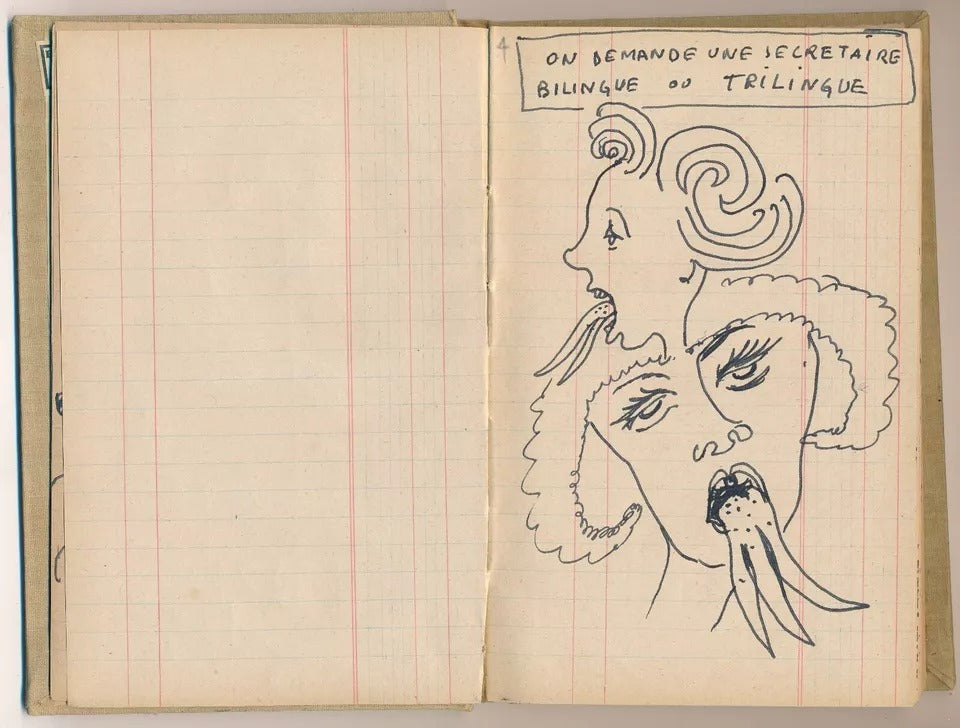 4
ON DEMANDE UNE SECRETAIRE
BILINGUE OU TRILINGUE